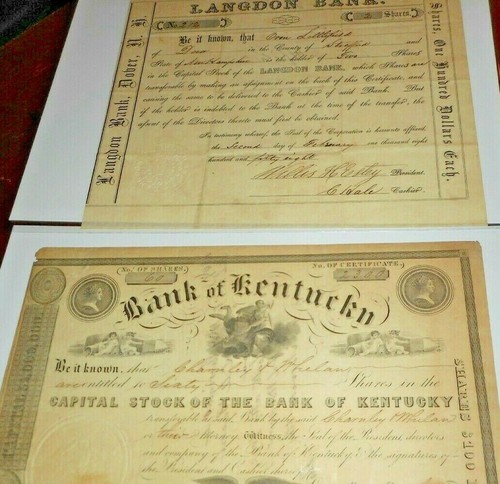 LANGDON BANK.
No. 212
2 Shares.
Be it known, that Oren Littlefield
of Dover in the County of Strafford and
State of New Hampshire is the holder of Two Shares
in the Capital Stock of the LANGDON BANK, which Shares are
transferable by making an assignment on the back of this Certificate, and
causing the same to be delivered to the Cashier of said Bank. But
if the holder is indebted to the Bank at the time of the transfer, the
assent of the Directors thereto must first be obtained.
In testimony whereof, the Seal of the Corporation is hereunto affixed,
the Second day of February one thousand eight
hundred and fifty eight
President.
C Hale Cashier.
Langdon Bank, Dover, N. H.
Shares, One Hundred Dollars Each.
No. OF SHARES
60
No. OF CERTIFICATE
Bank of Kentucky
Be it known, that Chaunley & Whelan
are entitled to Sixty Shares in the
CAPITAL STOCK OF THE BANK OF KENTUCKY
transferable at said Bank by the said Chaunley & Whelan
or Attorney Witness, The Seal of the President, directors
and company of the Bank of Kentucky & the signatures of
the President and Cashier thereof
CAPITAL $5,000,000
SHARES $100